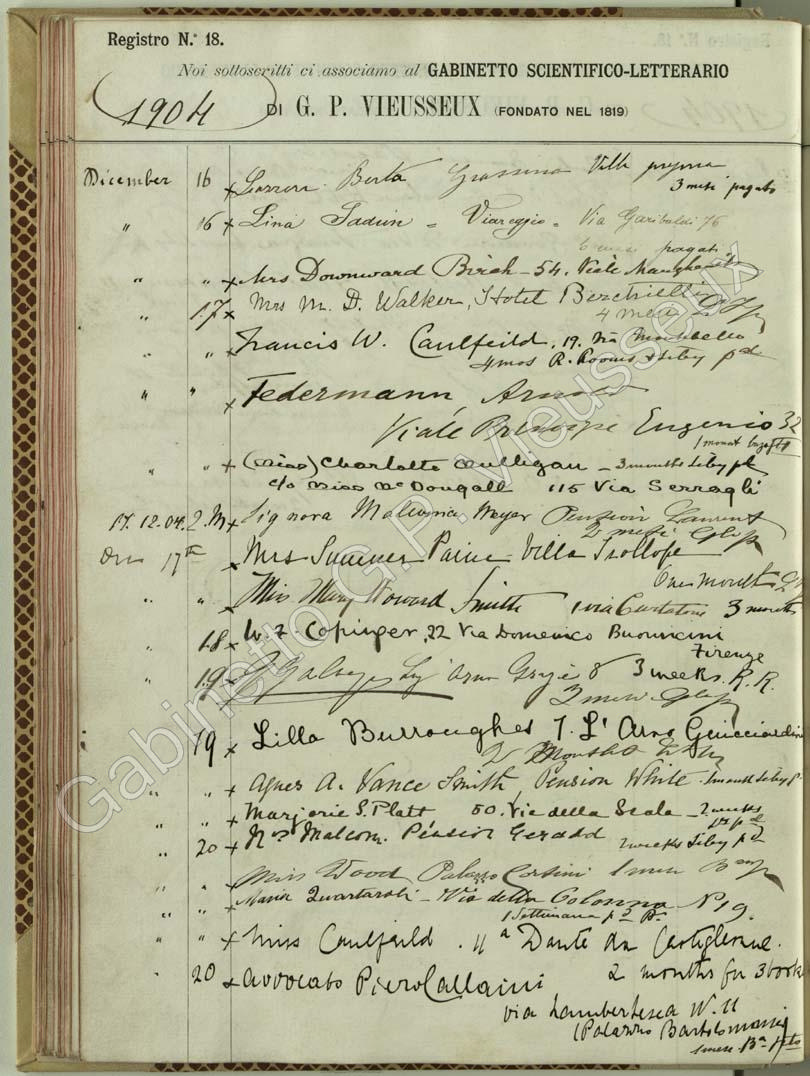 Registro N.° 18.
Noi sottoscritti ci associamo al GABINETTO SCIENTIFICO-LETTERARIO
1904
DI G. P. VIEUSSEUX (FONDATO NEL 1819)
Dicember 16 x Berta Grassina Villa
3 mesi pagato
" 16 x Lina Sadun = Viareggio = Via Garibaldi 76
mesi pagati
" " x Mrs Downward Birch - 54. Viale Margherita
" 17 x Mrs M. D. Walker, Hotel Berchielli
4 mesi
" " Francis W. Caulfeild, 19. Via Montebello
4 mos R. Rooms & liby pd
" " x Federmann, Arnold
Viale Principe Eugenio 32
1 monat
" " x (Miss) Charlotte Mulligan - 3 months liby pd
c/o Miss McDougall 115 Via Serragli
17. 12. 04. x Signora Malwina Meyer Pension Laurent
2 mesi
Dec 17th x Mrs Sumner Paine - Villa Trollope
One month
" " x Miss Mary Howard Smith 1 via Curtatone 3 months
" 18 x W. Z. Copinger, 22 Via Domenico Buonvicini
Firenze
" 19 x 8 3 weeks. R. R.
19 x Lilla Burroughes 7. L' Arno Guicciardini
2 Months
" " x Agnes A. Vance Smith, Pension White - 1 month liby pd
" " x Marjorie S. Platt 50. Via della Scala - 2 weeks
pd
" 20 x Malcom. Pension 2 weeks liby pd
" " Miss Wood Palazzo Corsini 1 mese
" " x Maria Quartaroli - Via della Colonna No 19.
1 Settimana
" " x Miss Caulfeild. 11a Dante da Castiglione.
" 20 x avvocato Piero Callaini 2 months for 3 books
via Lambertesca N. 11
(Palazzo Bartolommei)
1 mese
Gabinetto G.P. Vieusseux